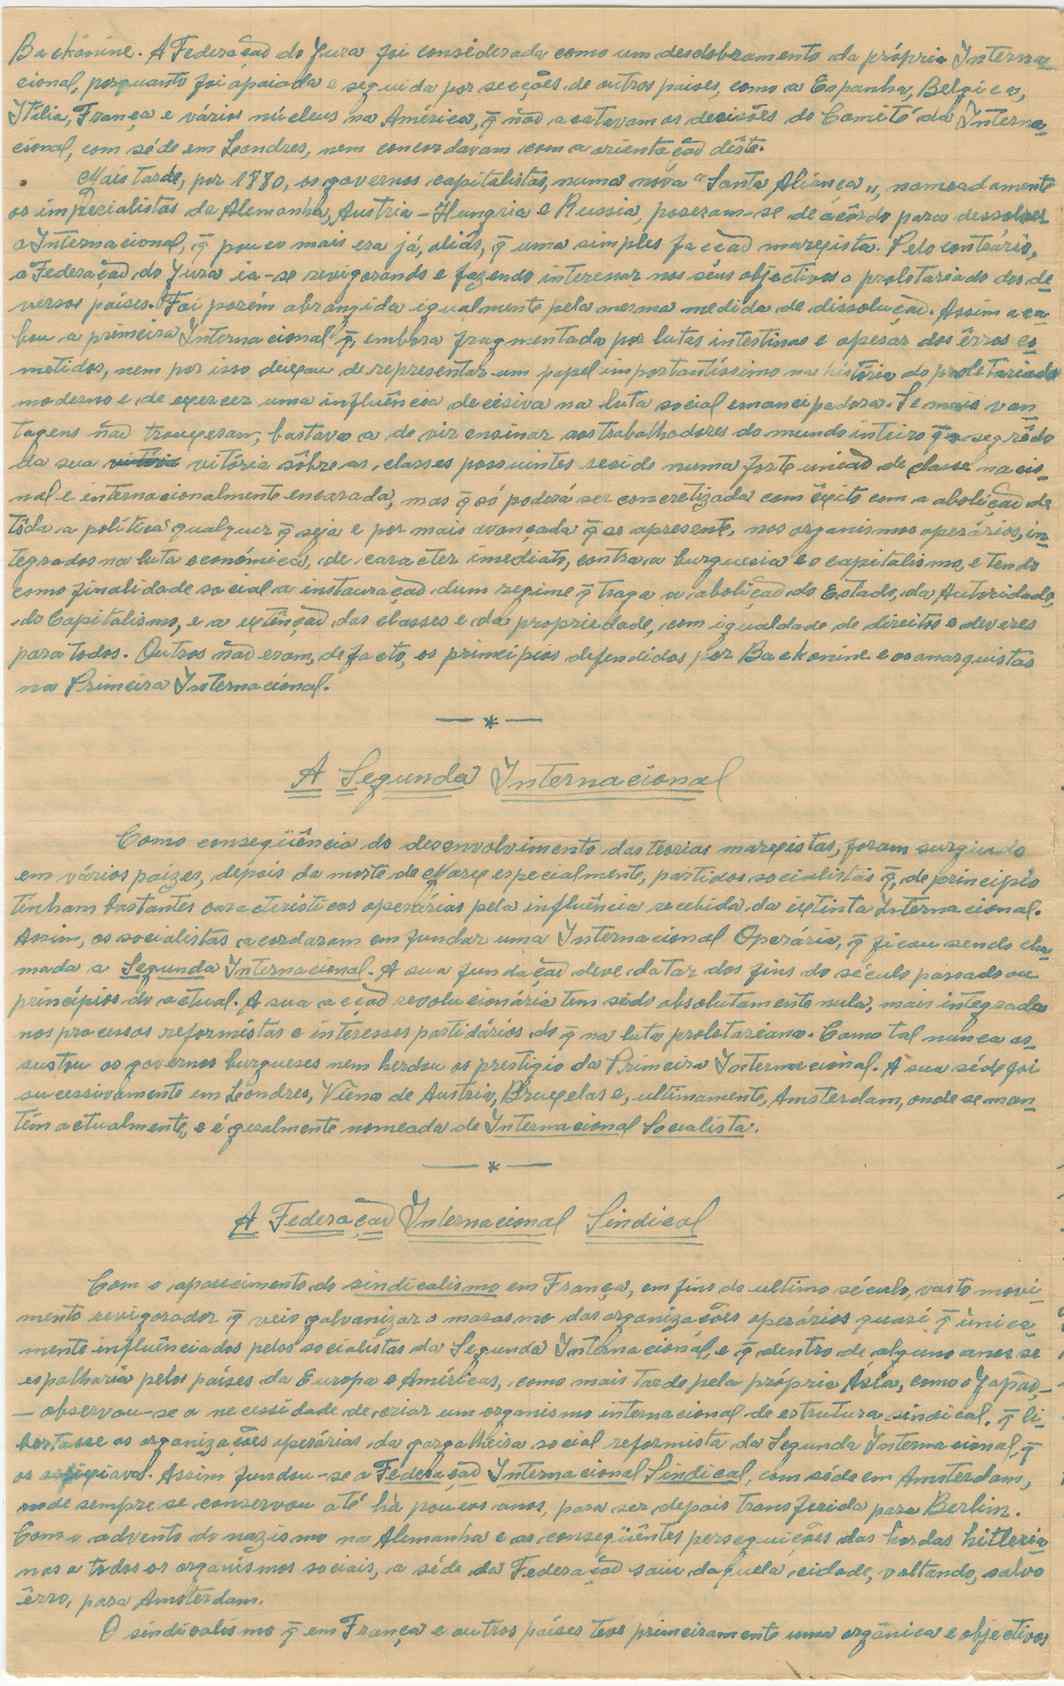 Backúnine. A Federação do Jura foi considerada como um desdobramento da própria Interna-
cional, porquanto foi apoiada e seguida por secções de outros países, como a Espanha, Belgica,
Itália, França e vários núcleus na América, q̃ não acatavam as decisões do Comité da Interna-
cional, com séde em Londres, nem concordavam com a orientação dêste.
Mais tarde, por 1880, os governos capitalistas, numa nova "Santa Aliança", nomeadamente
os imperialistas da Alemanha, Austria-Hungria e Russia, poseram-se de acôrdo para dessolver
a Internacional, q̃ pouco mais era já, aliás, q̃ uma simples facção marxista. Pelo contrário,
a Federação do Jura ia-se revigorando e fazendo interessar nos seus objectivos o proletariado dos de-
versos países. Foi porém abrangida igualmente pela mesma medida de dissolução. Assim aca-
bou a primeira Internacional q̃, embora fragmentada por lutas intestinas e apesar dos êrros co-
metidos, nem por isso deixou de representar um papel importantíssimo na história do proletariado
moderno e de exercer uma influência decisiva na luta social emancipadora. Se mais van-
tagens não trouxeram, bastava a de vir ensinar aos trabalhadores do mundo inteiro q̃ o segrêdo
da sua vitória sôbre as classes possuintes reside numa forte união de classe nacio-
nal e internacionalmente encarada, mas q̃ só poderá ser concretizada com êxito com a abolição de
tôda a política qualquer q̃ seja e por mais avançada q̃ se apresente, nos organismos operários, in-
tegrados na luta económica, de caracter imediato, contra a burguesia e o capitalismo, e tendo
como finalidade social a instauração dum regime q̃ traga a abolição do Estado, da Autoridade,
do Capitalismo, e a extinção das classes e da propriedade, com igualdade de direitos e deveres
para todos. Outros não eram, de facto, os princípios defendidos por Backonine e os anarquistas
na Primeira Internacional.
— * —
A Segunda Internacional
Como conseqüência do desenvolvimento das teorias marxistas, foram surgindo
em vários paízes, depois da morte de Marx especialmente, partidos socialistas q̃, de princípio
tinham bastantes caracteristicas operárias pela influência recebida da extinta Internacional.
Assim, os socialistas acordaram em fundar uma Internacional Operária, q̃ ficou sendo cha-
mada a Segunda Internacional. A sua fundação deve datar dos fins do século passado ou
princípios do actual. A sua acção revolucionária tem sido absolutamente nula, mais integrada
nos processos reformistas e interesses partidários do q̃ na luta proletariana. Como tal nunca as-
sustou os governos burgueses nem herdou os prestigio da Primeira Internacional. A sua séde foi
sucessivamente em Londres, Viena de Austria, Bruxelas e, ultimamente, Amsterdam, onde se man-
tém actualmente, e é igualmente nomeada de Internacional Socialista.
— * —
A Federação Internacional Sindical
Com o aparecimento do sindicalismo em França, em fins do ultimo século, vasto movi-
mento revigorador q̃ veio galvanizar o marasmo das organizações operárias quasi q̃ única-
mente influênciados pelos socialistas da Segunda Internacional, e q̃ dentro de alguns anos se
espalharia pelos países da Europa e Américas, como mais tarde pela própria Asia, como o Japão —
— observou-se a necessidade de criar um organismo internacional de estrutura sindical, q̃ li-
bertasse as organizações operárias da gargalheira social reformista da Segunda Internacional, q̃
os asfixiava. Assim fundou-se a Federação Internacional Sindical, com séde em Amsterdam,
onde sempre se conservou até há poucos anos, para ser depois transferida para Berlin.
Com o advento do nazismo na Alemanha e as conseqüêntes perseguições das hordas hitleria-
nas a todos os organismos sociais, a séde da Federação saiu daquela cidade, voltando, salvo
êrro, para Amsterdam.
O sindicalismo q̃ em França e outros países teve primeiramente uma orgânica e objectivos